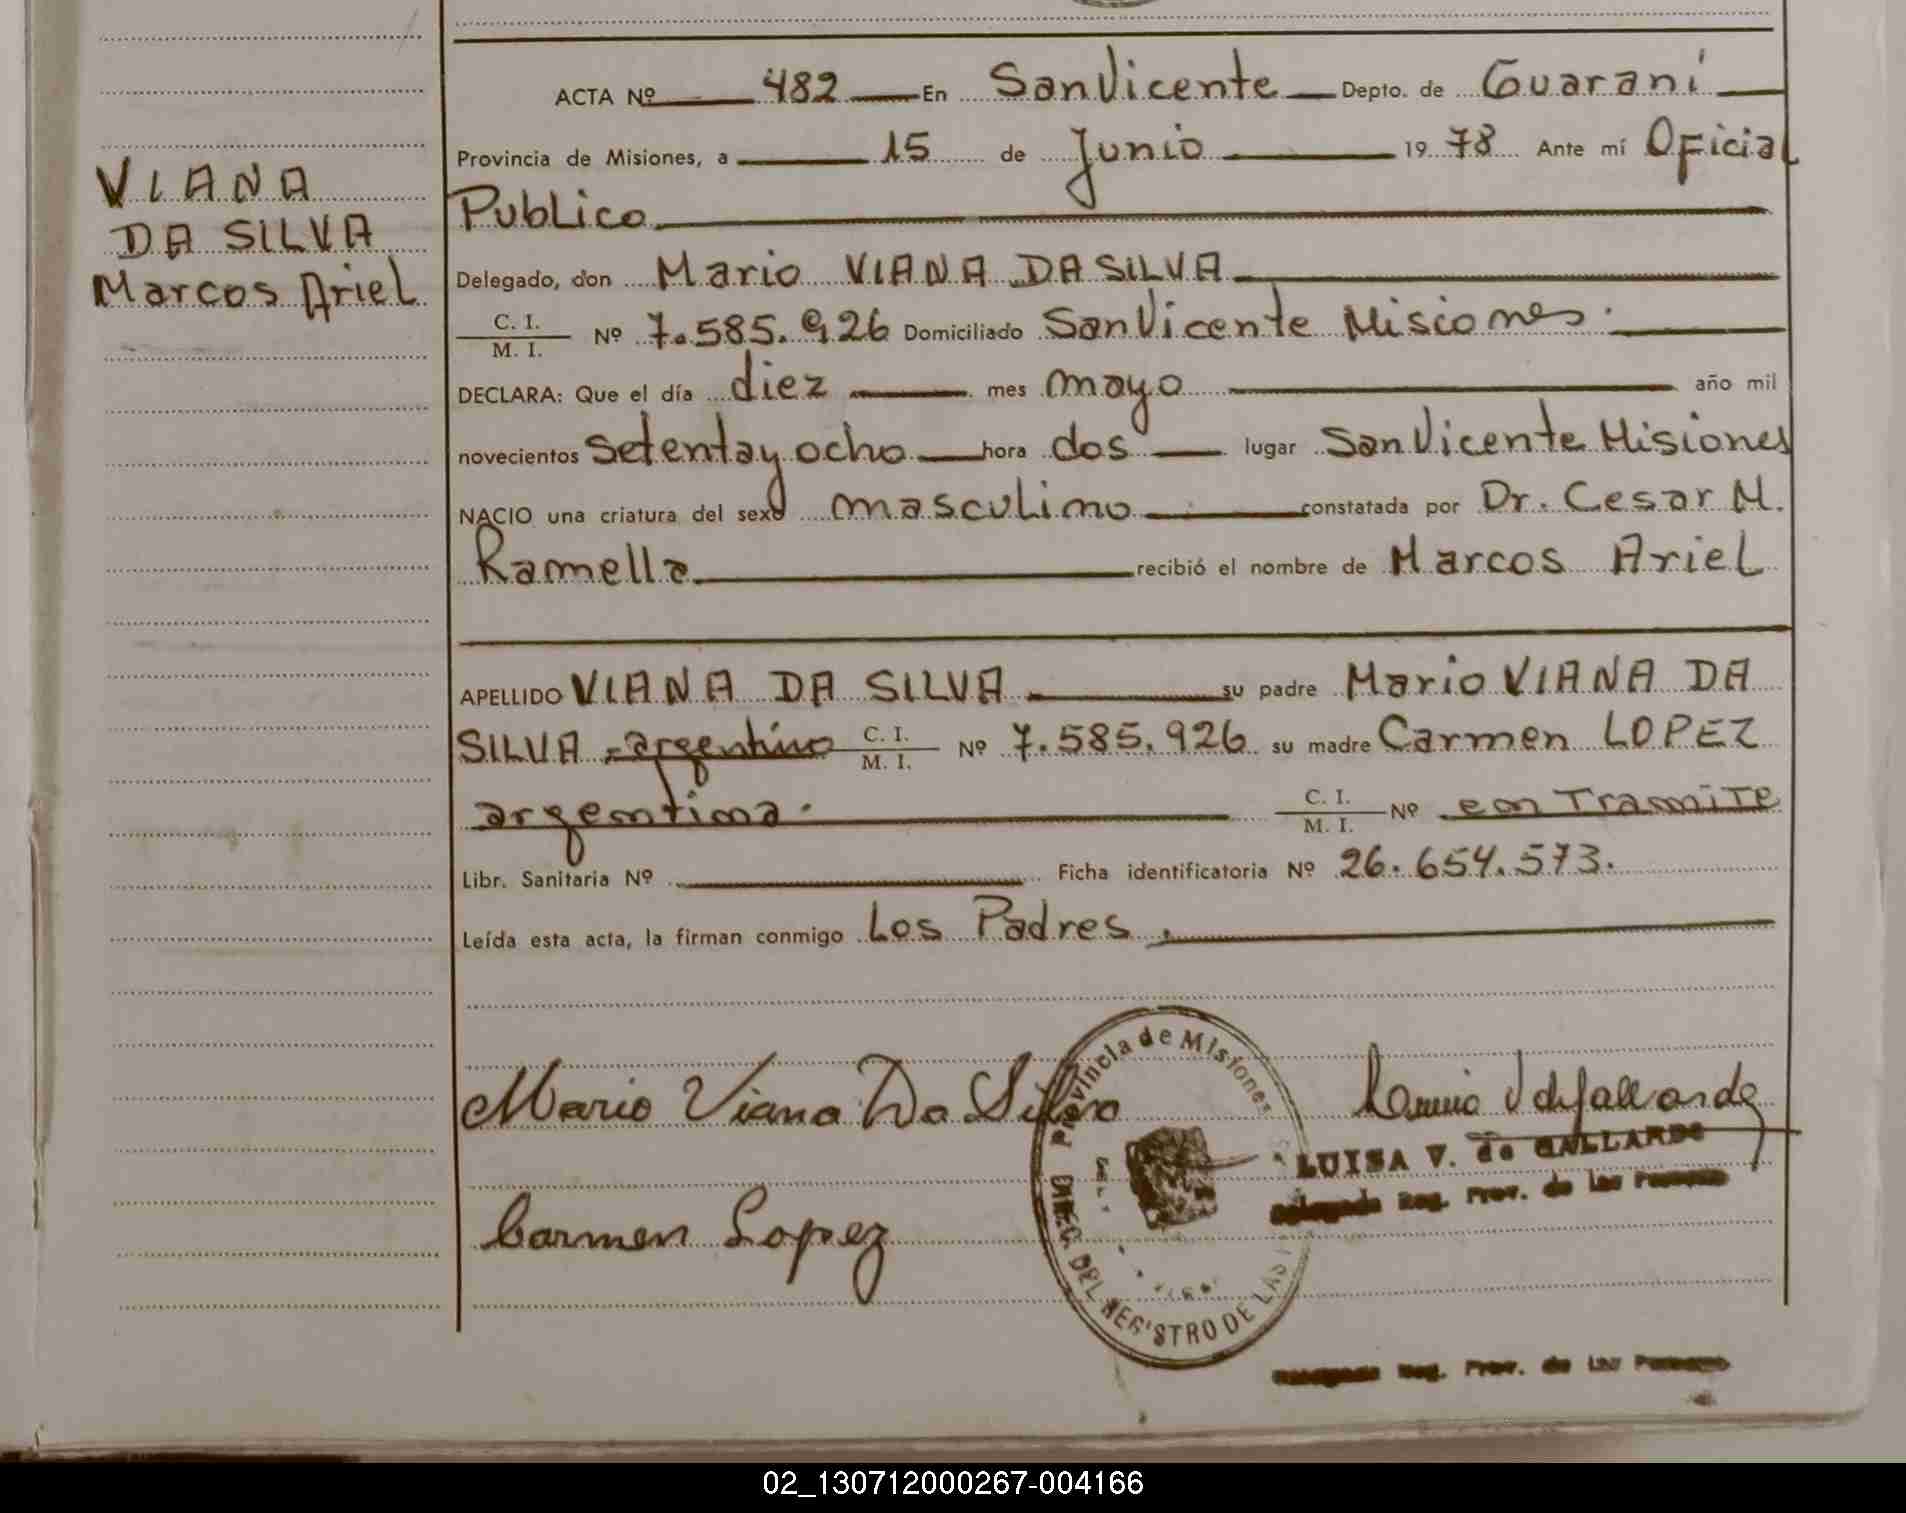 ACTA Nº 482 En San Vicente Depto. de Guaraní
Provincia de Misiones, a 15 de Junio 1978 Ante mí Oficial
Publico
VIANA
DA SILVA
Marcos Ariel
Delegado, don Mario VIANA DA SILVA
C. I. / M. I. Nº 7.585.926 Domiciliado San Vicente Misiones.
DECLARA: Que el día diez mes mayo año mil
novecientos setenta y ocho hora dos lugar San Vicente Misiones
NACIO una criatura del sexo masculino constatada por Dr. Cesar M.
Ramella recibió el nombre de Marcos Ariel
APELLIDO VIANA DA SILVA su padre Mario VIANA DA
SILVA - argentino C. I. / M. I. Nº 7.585.926 su madre Carmen LOPEZ
argentina. C. I. / M. I. Nº en Tramite
Libr. Sanitaria Nº Ficha identificatoria Nº 26.654.573.
Leída esta acta, la firman conmigo Los Padres.
Mario Viana Da Silva
Provincia de Misiones
DIREC. DEL REGISTRO DE LAS
LUISA V. de GALLARDO
Delegada Reg. Prov. de las Personas
Carmen Lopez
Delegada Reg. Prov. de las Personas
02_130712000267-004166